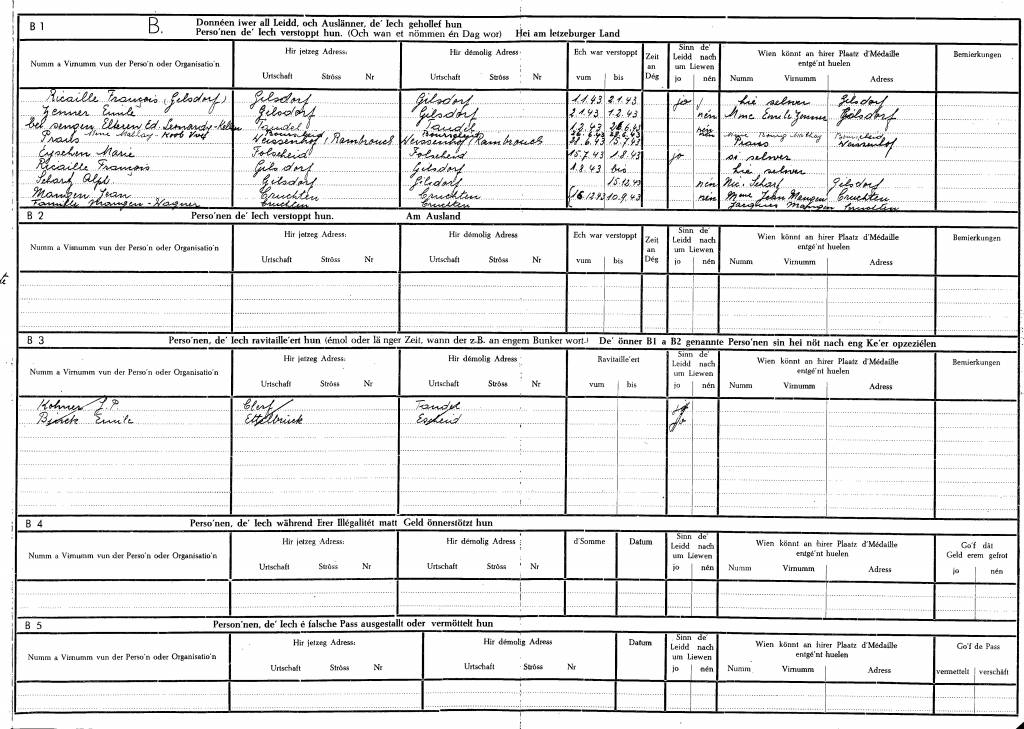 B 1 B. Donnéen iwer all Leidd, och Auslänner, de' Iech gehollef hun
Perso'nen de' Iech verstoppt hun. (Och wan et nömmen én Dag wor) Hei am letzeburger Land
Numm a Virnumm vun der Perso'n oder Organisatio'n Hir jetzeg Adress: Urtschaft Ströss Nr Hir démolig Adress Urtschaft Ströss Nr Ech war verstoppt vum bis Zeit an Dég Sinn de' Leidd nach um Liewen jo nén Wien könnt an hirer Plaatz d'Médaille entgé'nt huelen Numm Virnumm Adress Bemierkungen
Ricaille François (Gilsdorf) Gilsdorf Gilsdorf 1.1.43 2.1.43 jo hie selwer Gilsdorf
Zenner Emile Gilsdorf Gilsdorf 2.1.43 1.2.43 nén Mme Emile Zenner Gilsdorf
bei sengen Elteren Ed. Tandel Tandel 1.2.43
Weissenhof, Rambrouch Weissenhof, Rambrouch 15.7.43 Weissenhof
Eyschen Marie Folscheid Folscheid 15.7.43 1.8.43 jo si selwer
Ricaille François Gilsdorf Gilsdorf 1.8.43 bis hie selwer
Scharf Alph. Gilsdorf Gilsdorf 15.12.43 nén Nic. Scharf Gilsdorf
Mangen Jean Cruchten Cruchten 10.9.43 nén Mme Jean Mangen Cruchten
Famille Mangen-Wagner Cruchten Cruchten Jacques Mangen Cruchten
B 2 Perso'nen de' Iech verstoppt hun. Am Ausland
Numm a Virnumm vun der Perso'n oder Organisatio'n Hir jetzeg Adress: Urtschaft Ströss Nr Hir démolig Adress Urtschaft Ströss Nr Ech war verstoppt vum bis Zeit an Dég Sinn de' Leidd nach um Liewen jo nén Wien könnt an hirer Plaatz d'Médaille entgé'nt huelen Numm Virnumm Adress Bemierkungen
B 3 Perso'nen, de' Iech ravitaille'ert hun (émol oder länger Zeit, wann der z.B. an engem Bunker wort.) De' önner B1 a B2 genannte Perso'nen sin hei nöt nach eng Ke'er opzeziélen
Numm a Virnumm vun der Perso'n oder Organisatio'n Hir jetzeg Adress: Urtschaft Ströss Nr Hir démolig Adress Urtschaft Ströss Nr Ravitaille'ert vum bis Sinn de' Leidd nach um Liewen jo nén Wien könnt an hirer Plaatz d'Médaille entgé'nt huelen Numm Virnumm Adress Bemierkungen
Kohner J.P. Clerf Tandel jo
Emile Ettelbrück Escheid jo
B 4 Perso'nen, de' Iech während Erer Illégalitét matt Geld önnerstötzt hun
Numm a Virnumm vun der Perso'n oder Organisatio'n Hir jetzeg Adress: Urtschaft Ströss Nr Hir démolig Adress Urtschaft Ströss Nr d'Somme Datum Sinn de' Leidd nach um Liewen jo nén Wien könnt an hirer Plaatz d'Médaille entgé'nt huelen Numm Virnumm Adress Go'f dât Geld erem gefrot jo nén
B 5 Person'nen, de' Iech é falsche Pass ausgestallt oder vermöttelt hun
Numm a Virnumm vun der Perso'n oder Organisatio'n Hir jetzeg Adress: Urtschaft Ströss Nr Hir démolig Adress Urtschaft Ströss Nr Datum Sinn de' Leidd nach um Liewen jo nén Wien könnt an hirer Plaatz d'Médaille entgé'nt huelen Numm Virnumm Adress Go'f de Pass vermettelt verschâft